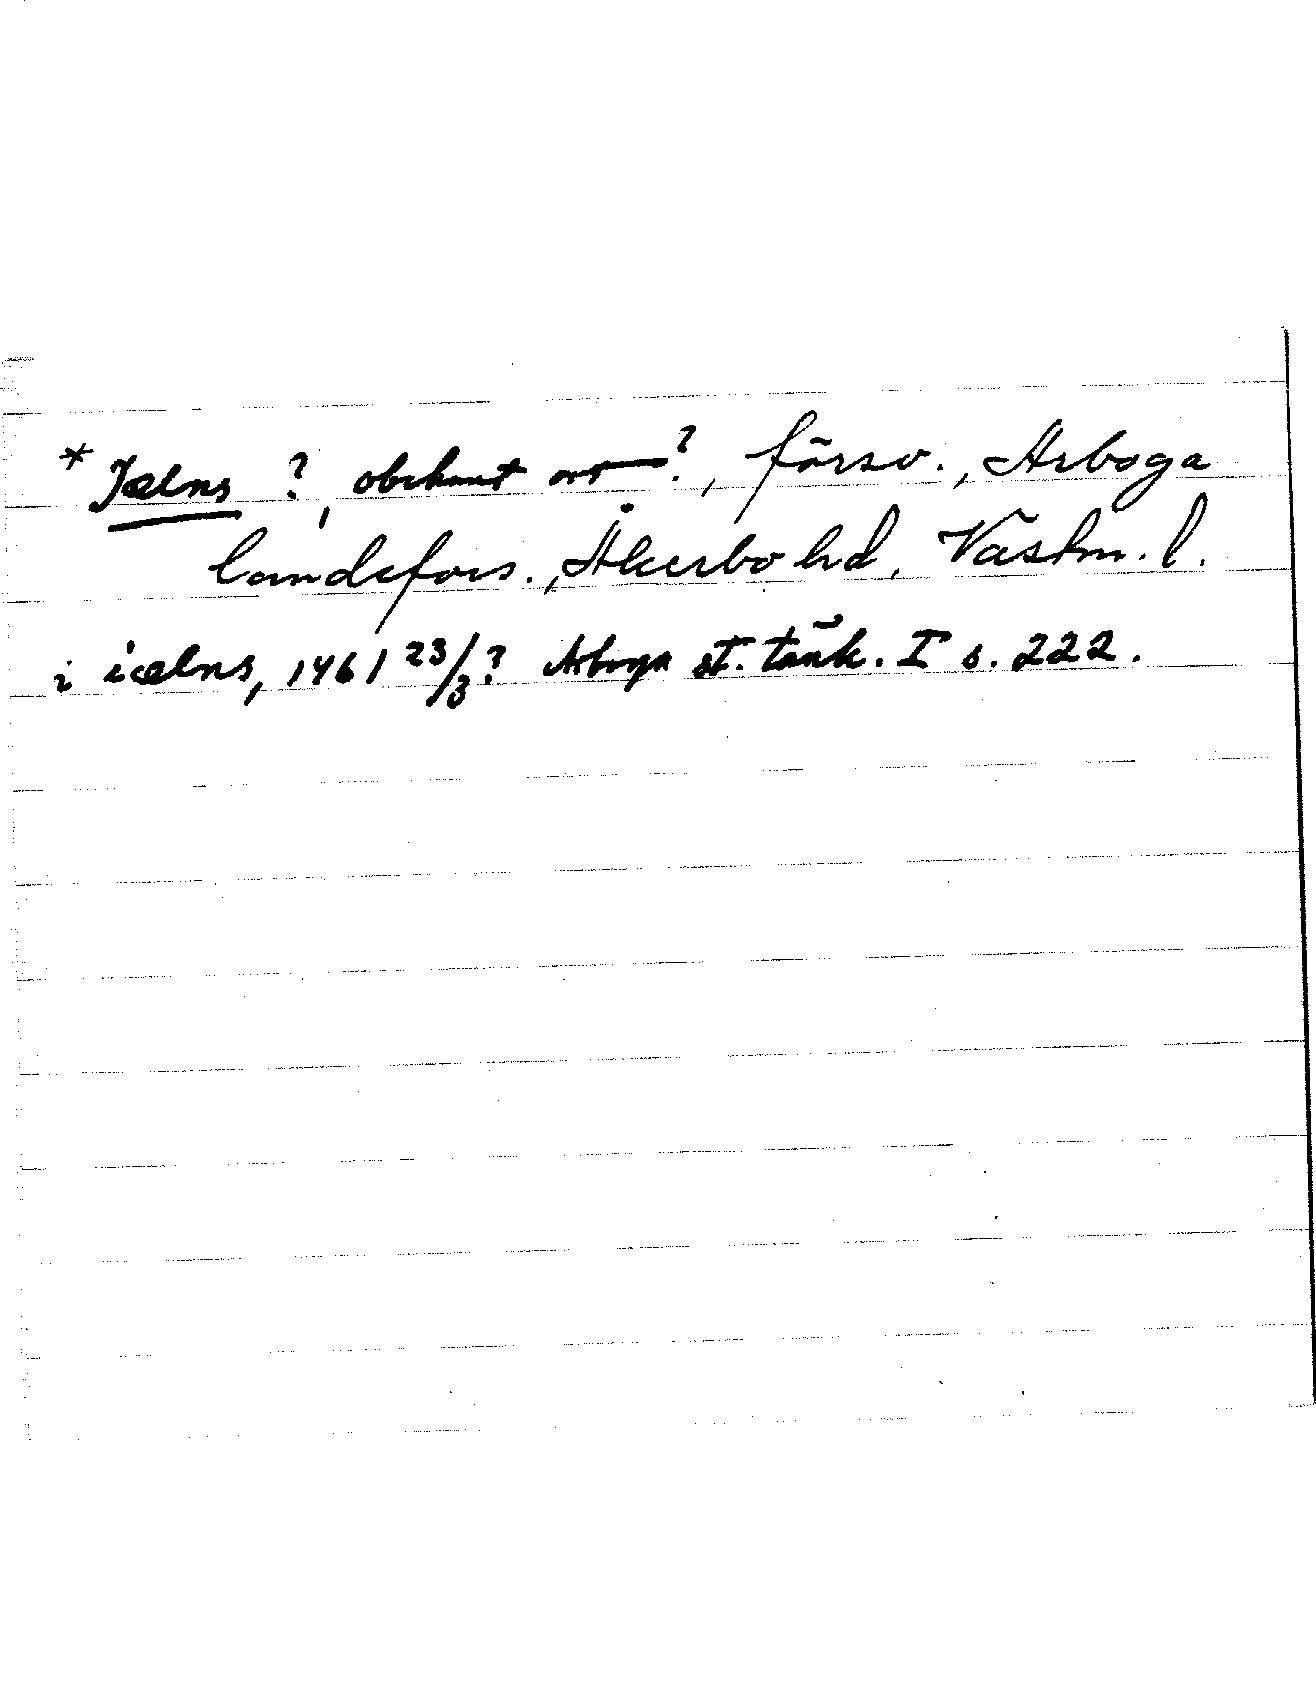 *Jælns ?, obekant ort ?, försv., Arboga
landsförs., Åkerbo hd, Västm. l.
i iælns, 1461 23/3? Arboga st. tänk. I s. 222.